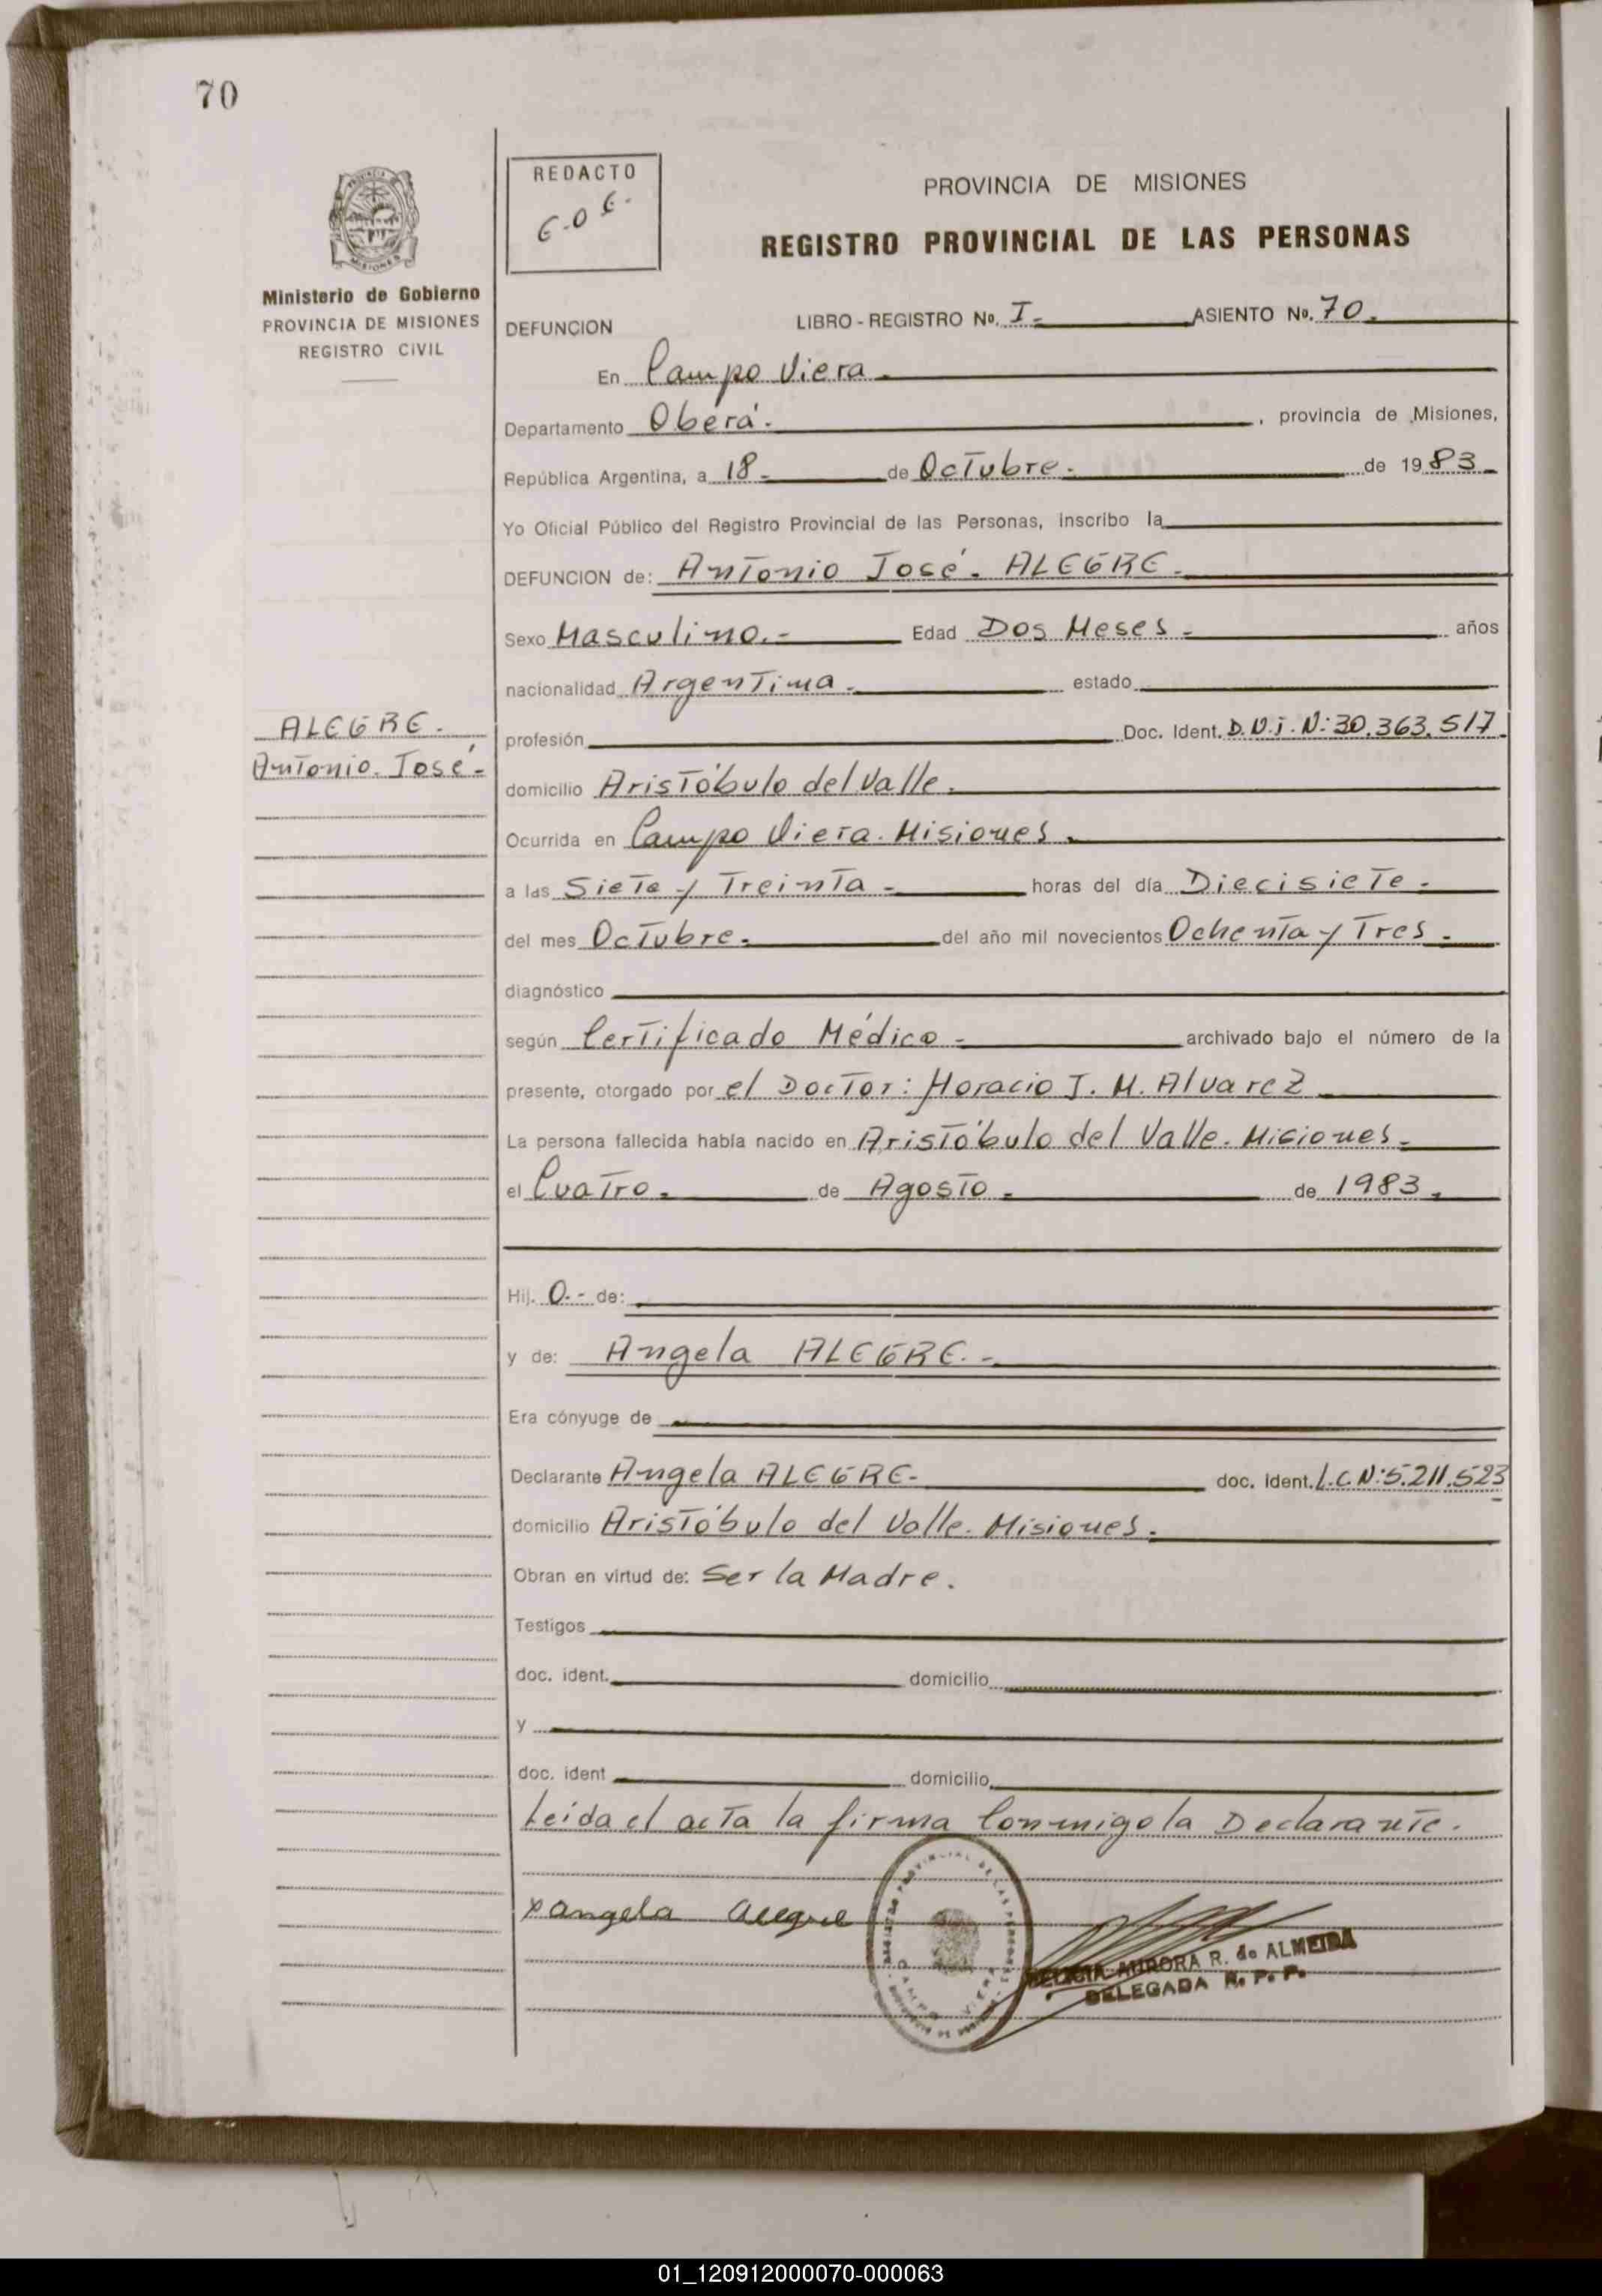 70
REDACTO
PROVINCIA DE MISIONES
REGISTRO PROVINCIAL DE LAS PERSONAS
Ministerio de Gobierno
PROVINCIA DE MISIONES
REGISTRO CIVIL
DEFUNCION LIBRO - REGISTRO No. I.- ASIENTO No. 70.
En Campo Viera.
Departamento Oberá. , provincia de Misiones,
República Argentina, a 18.- de Octubre.- de 1983.-
Yo Oficial Público del Registro Provincial de las Personas, inscribo la
DEFUNCION de: Antonio José. ALEGRE.
Sexo Masculino.- Edad Dos Meses.- años
nacionalidad Argentina.- estado
ALEGRE.
Antonio. José.-
profesión Doc. Ident. D.N.i. N: 30.363.517
domicilio Aristóbulo del Valle.
Ocurrida en Campo Viera. Misiones.
a las Siete y Treinta.- horas del día Diecisiete.-
del mes Octubre.- del año mil novecientos Ochenta y Tres.-
diagnóstico
según Certificado Médico.- archivado bajo el número de la
presente, otorgado por el Doctor: Horacio J. M. Alvarez
La persona fallecida había nacido en Aristóbulo del Valle. Misiones.-
el Cuatro.- de Agosto.- de 1983.-
Hij. o.- de:
y de: Angela ALEGRE.-
Era cónyuge de
Declarante Angela ALEGRE.- doc. ident. L.C.N:5.211.523
domicilio Aristóbulo del Valle. Misiones.-
Obran en virtud de: Ser la Madre.
Testigos
doc. ident. domicilio
y
doc. ident domicilio
Leida el acta la firma Conmigo la Declarante.
x angela alegre
AURORA R. de ALMEIDA
DELEGADA R. P. P.
01_120912000070-000063